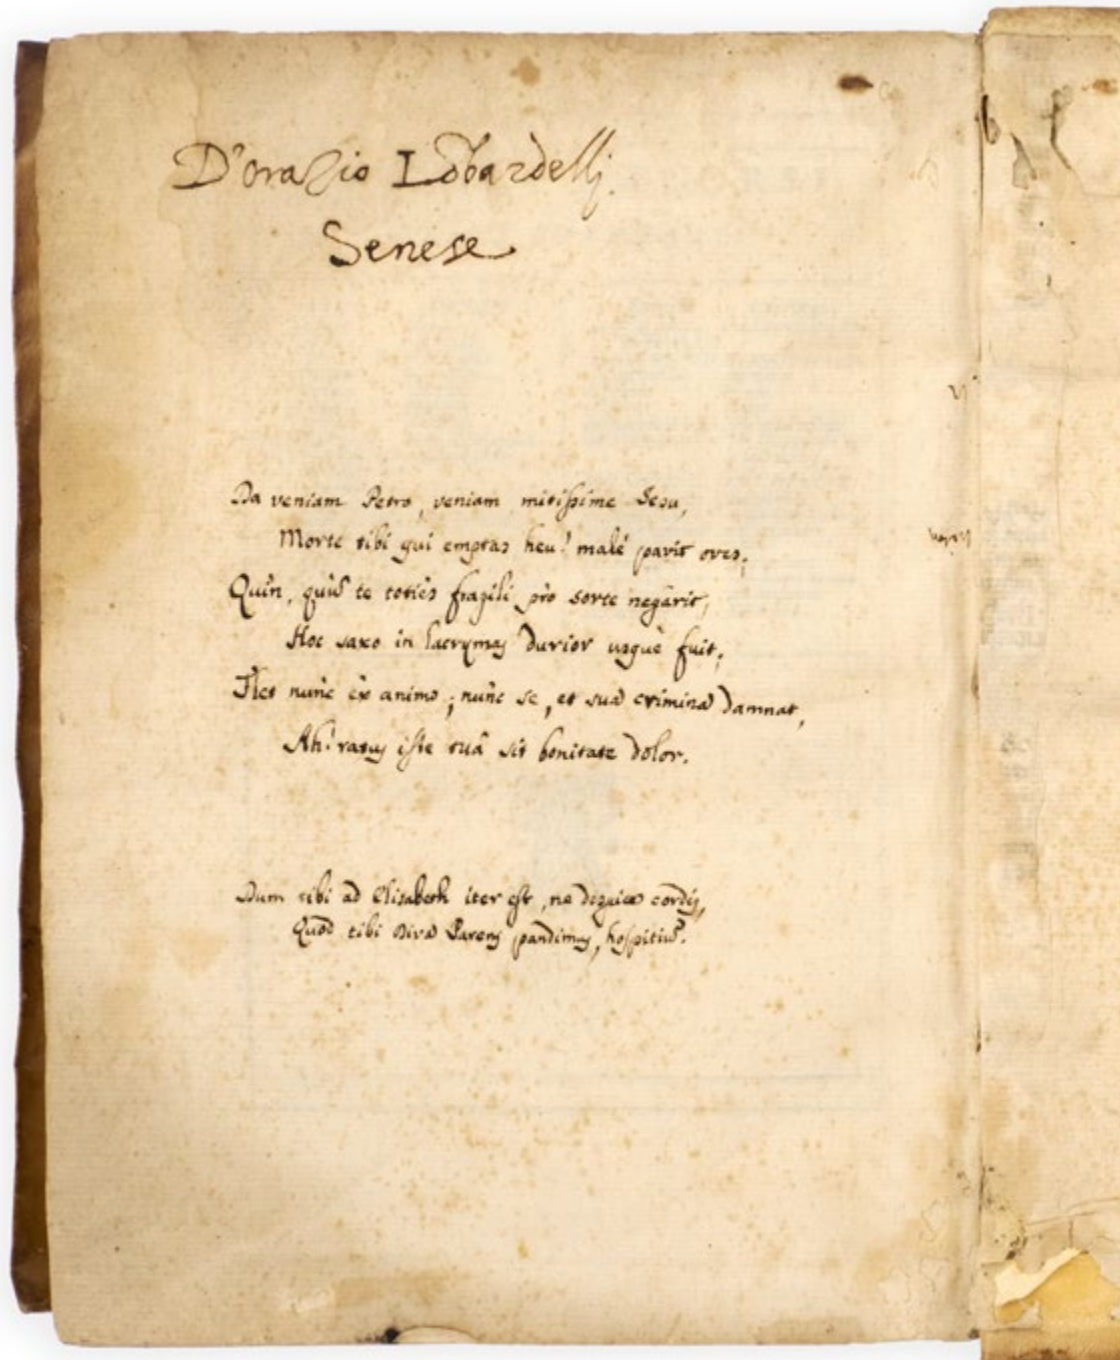 D'orazio Lōbardelli
Senese
Da veniam Petro, veniam mitissime Jesu,
Morte tibi qui emptas heu! malè pavit oves;
Quin, quũ te totiès fragili prò sorte negârit,
Hoc saxo in lacrymas durior usquè fuit;
Flet nunc ex animo; nunc se, et sua crimina damnat,
Ah! ratus iste tuâ sit bonitate dolor.
Dum tibi ad Elisabeth iter est, ne cordis,
Quod tibi Diva Parens pandimus, hospitiũ.